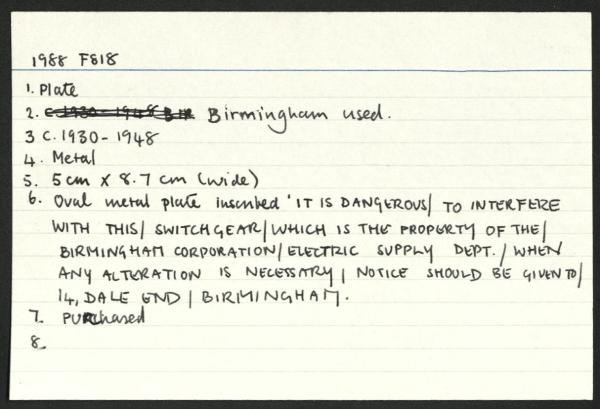 1988 F818
1. Plate
2. C 1930-1948 BIR Birmingham used.
3 C. 1930 - 1948
4. Metal
5. 5cm X 8.7 cm (wide)
6. Oval metal plate inscribed 'IT IS DANGEROUS/ TO INTERFERE
WITH THIS/ SWITCHGEAR/ WHICH IS THE PROPERTY OF THE/
BIRMINGHAM CORPORATION/ ELECTRIC SUPPLY DEPT. / WHEN
ANY ALTERATION IS NECESSARY / NOTICE SHOULD BE GIVEN TO/
14, DALE END / BIRMINGHAM.
7. PURchased
8.